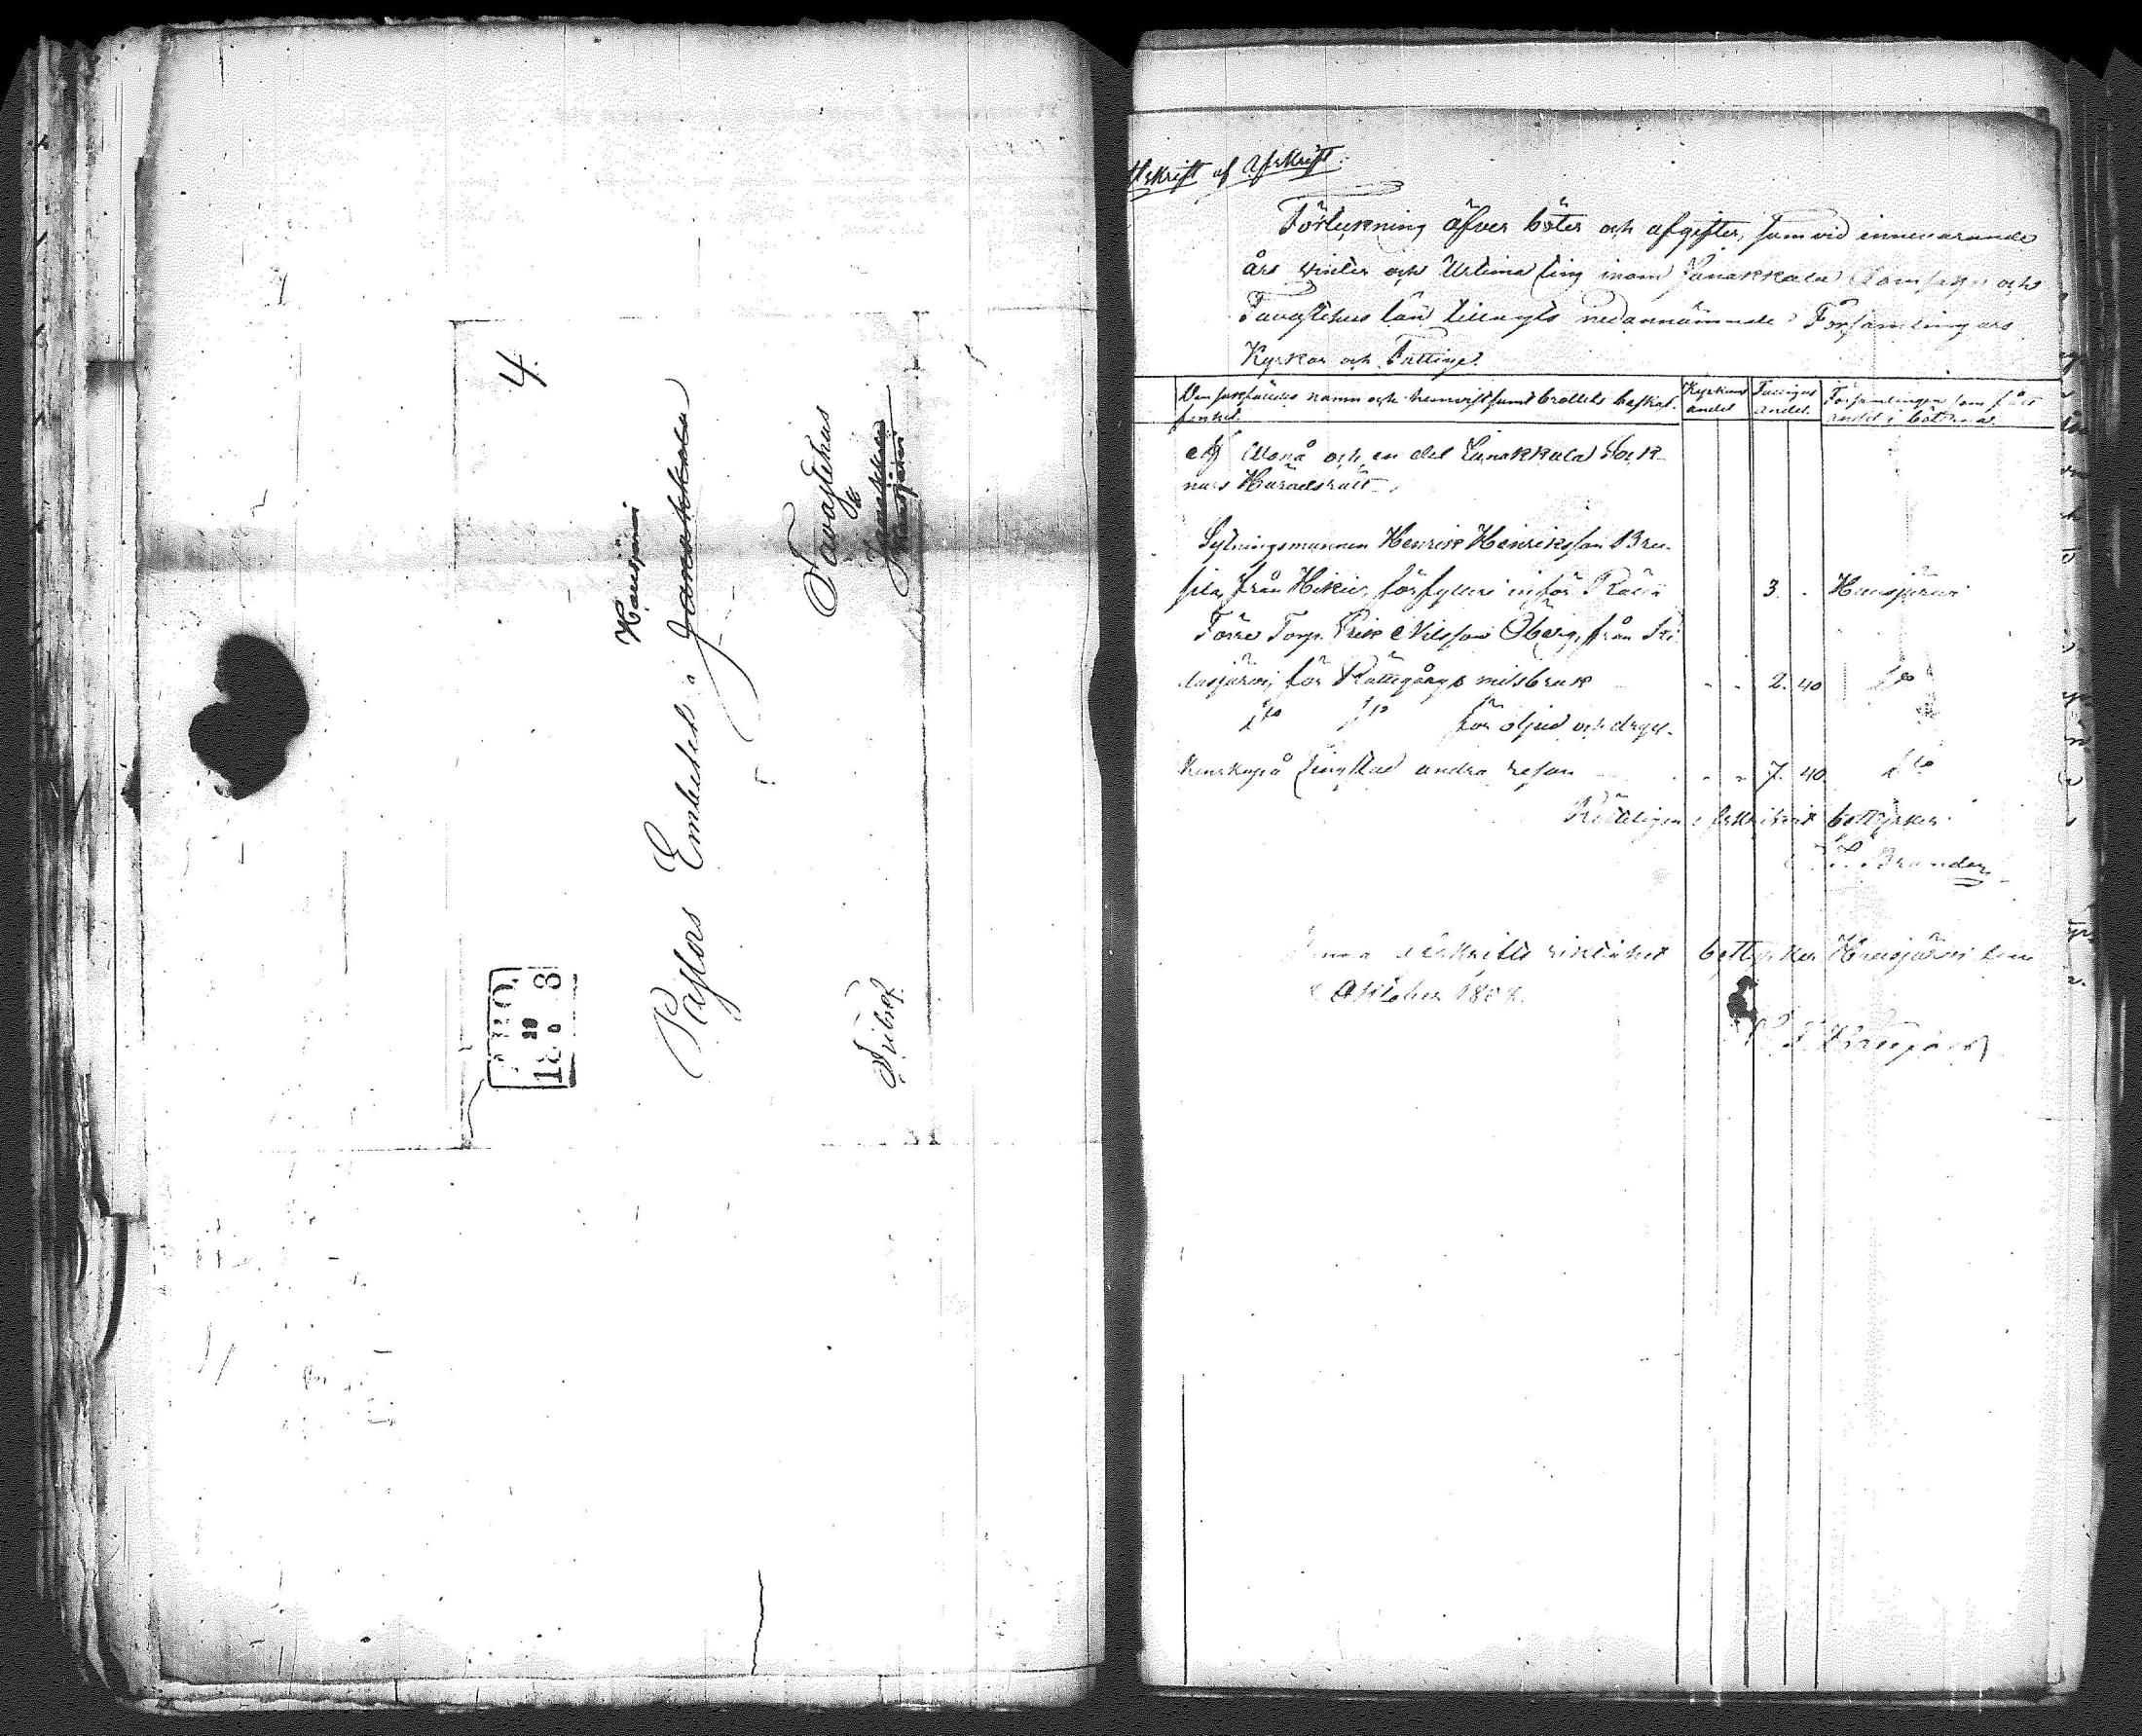 4.
Hausjärvi
Pastors Embetet i Janakkala
Tavastehus
&
Janakkala
Hausjärvi
Fribref.
ÅBO
18 8
Utskrift af Afskrift.
Förteckning öfver böter och afgifter, som vid innevarande
års vinter och Urtima ting inom Janakkala Domsaga och
Tavastehus län tillagts nedannämnde Församlingars
Kyrkor och Fattige.
Den sakfäldes namn och hemvist samt brottets beskaf-
fenhet.
Kyrkans andel
Fattiges andel.
Församlingen som fått andel i böterna
och en del Janakkala Sock-
nars Häradsrätt.
Sytningsmannen Henrik Henriksson
från Hikiä, för fylleri inför Rätta 3. - Hausjärvi
Torp. Erik Nilsson Öberg, från
för Rättegångs missbruk - - 2. 40 do
do do för oljud och dryc-
kenskap å Tingstad andra resan - - 7. 40. do
Rätteligen afskrifvit bettyrker
Brander
afskrifts riktighet bettyrker Hausjärvi den
Oktober